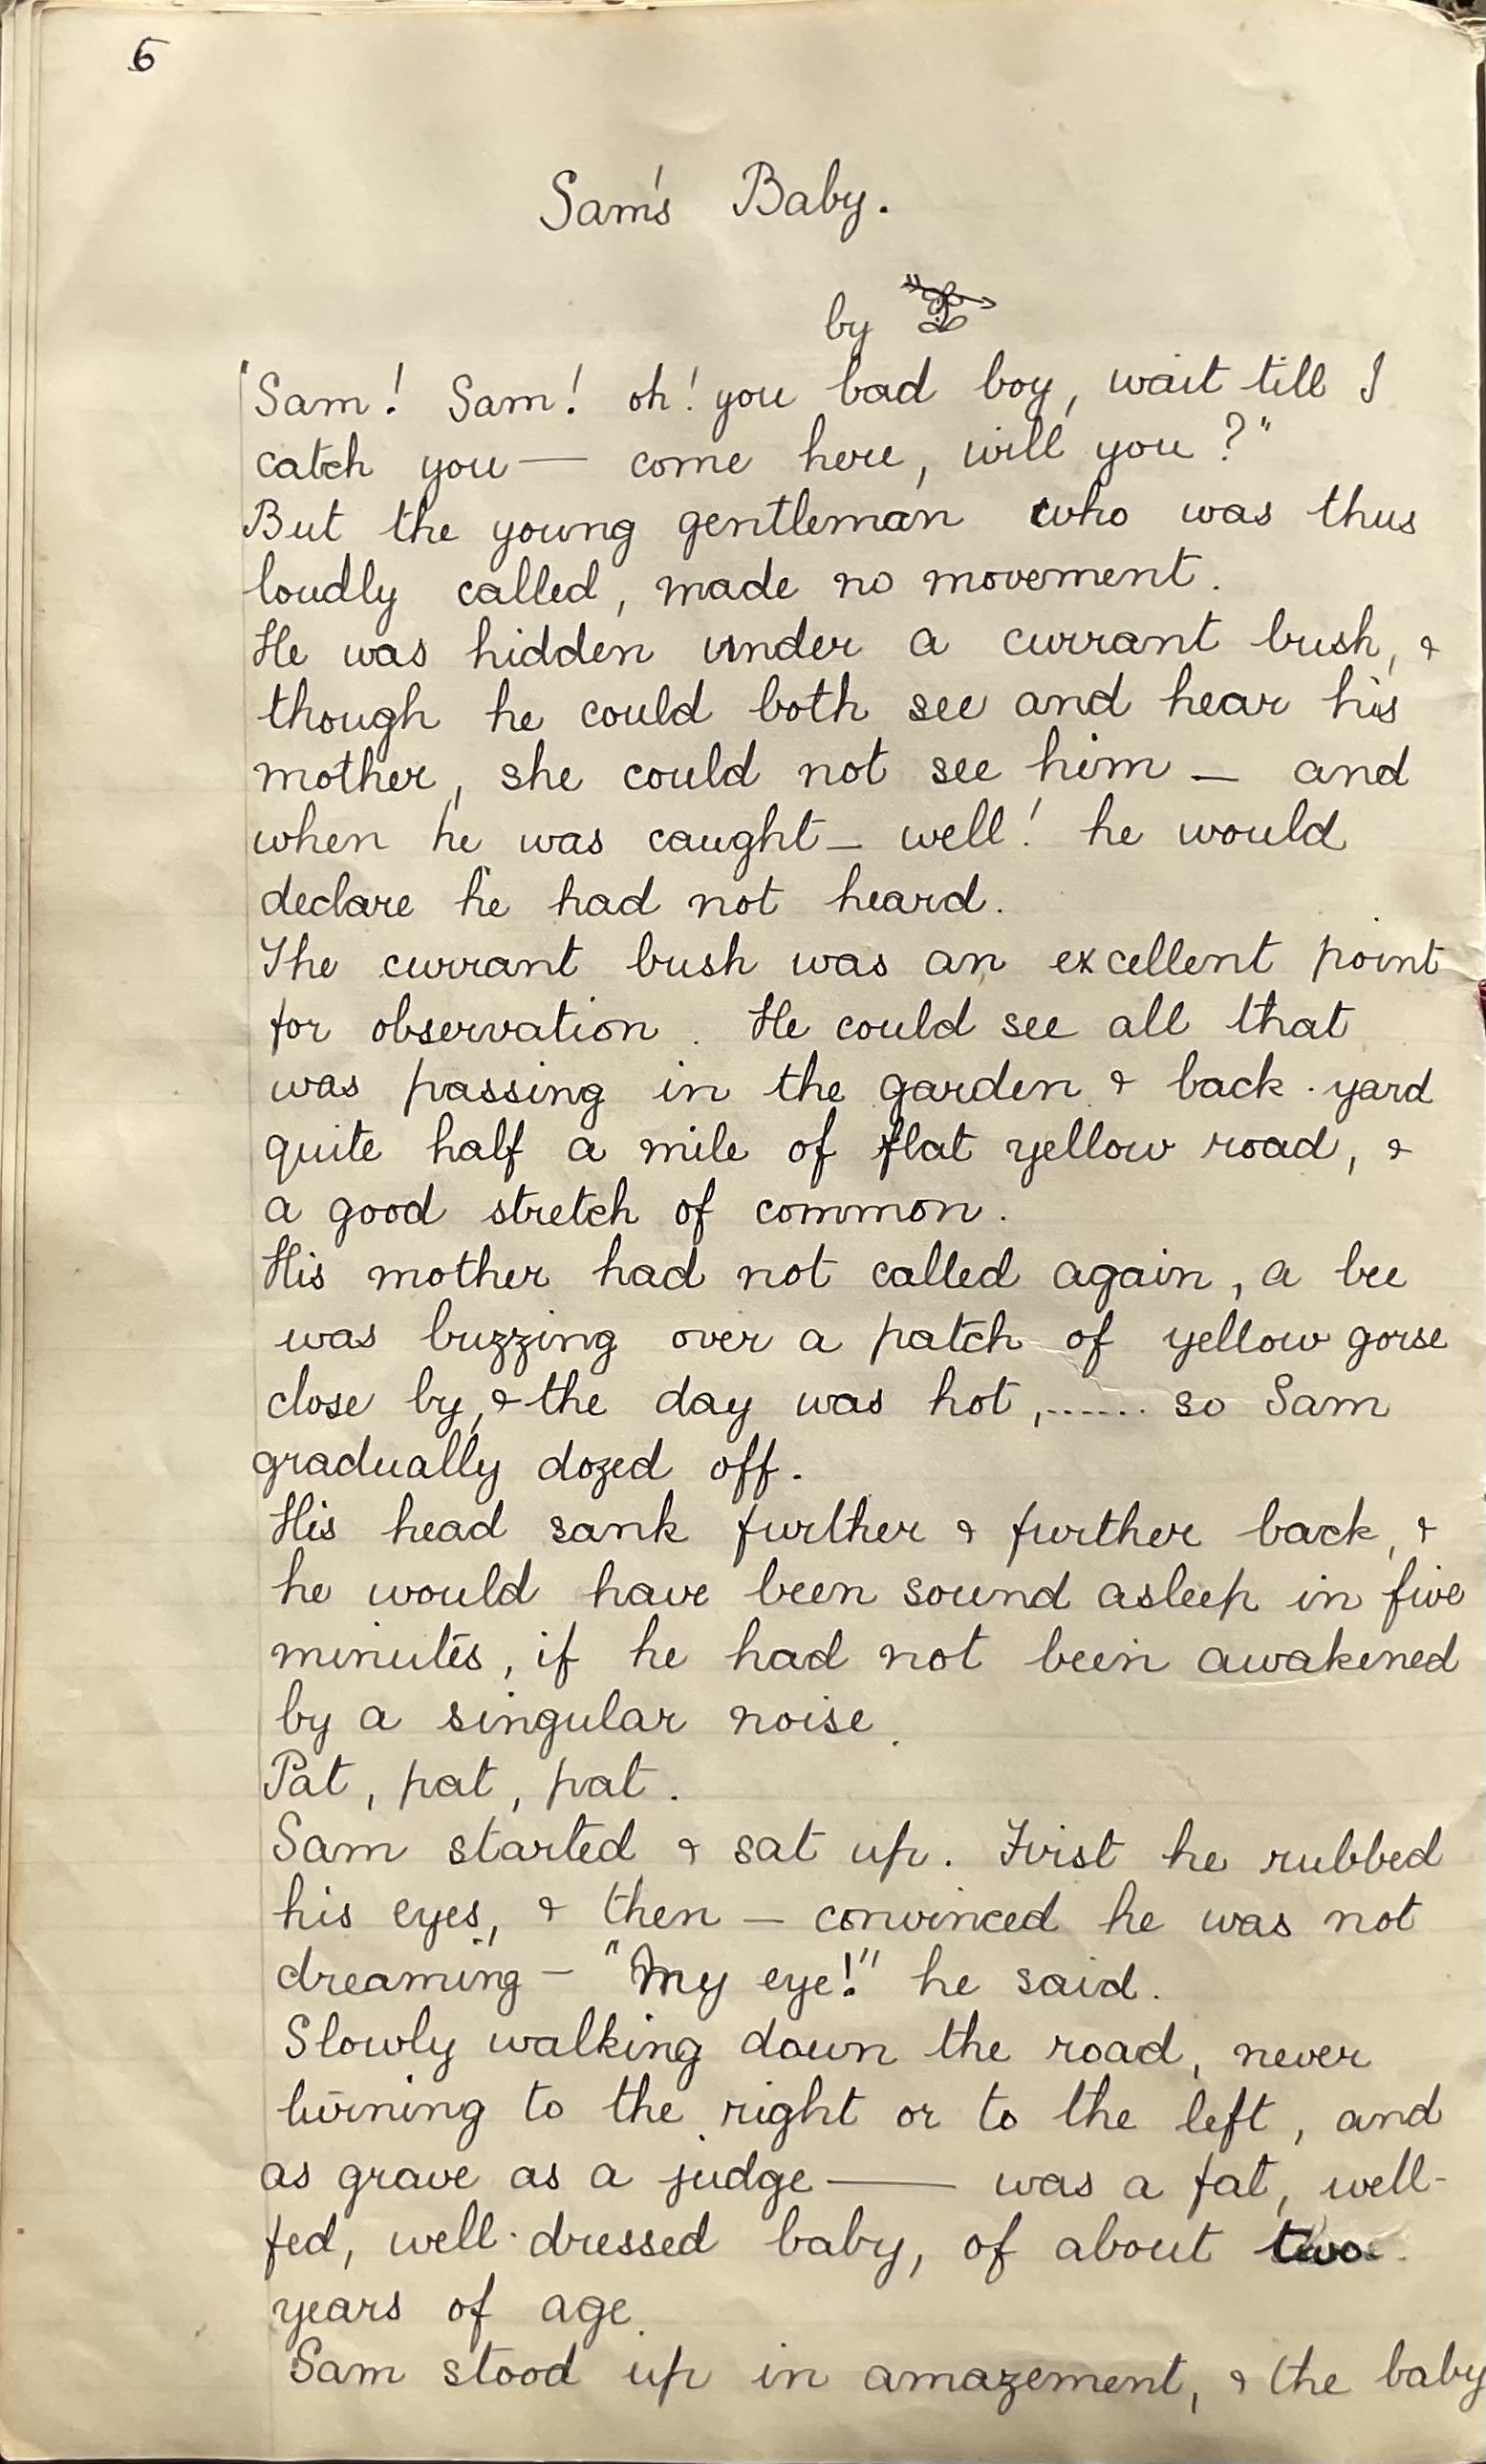 6
Sam's Baby.
by
"Sam! Sam! oh! you bad boy, wait till I
catch you — come here, will you?"
But the young gentleman who was thus
loudly called, made no movement.
He was hidden under a currant bush, &
though he could both see and hear his
mother, she could not see him — and
when he was caught — well! he would
declare he had not heard.
The currant bush was an excellent point
for observation. He could see all that
was passing in the garden & back-yard
quite half a mile of flat yellow road, &
a good stretch of common.
His mother had not called again, a bee
was buzzing over a patch of yellow gorse
close by, & the day was hot,...... so Sam
gradually dozed off.
His head sank further & further back, &
he would have been sound asleep in five
minutes, if he had not been awakened
by a singular noise.
Pat, pat, pat.
Sam started & sat up. First he rubbed
his eyes, & then — convinced he was not
dreaming — "My eye!" he said.
Slowly walking down the road, never
turning to the right or to the left, and
as grave as a judge —— was a fat, well-
fed, well-dressed baby, of about two
years of age.
Sam stood up in amazement, & the baby